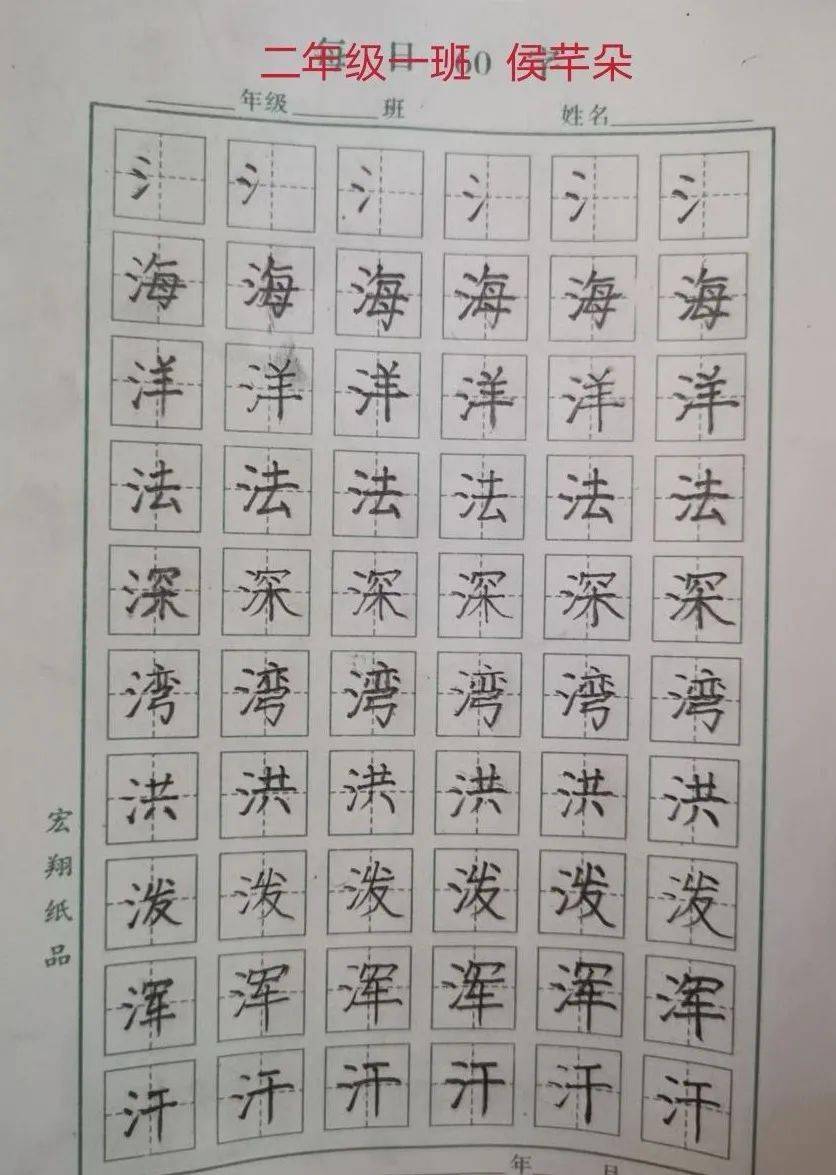 每日60字
二年级一班 侯芊朵
年级 班 姓名
氵 氵 氵 氵 氵 氵
海 海 海 海 海 海
洋 洋 洋 洋 洋 洋
法 法 法 法 法 法
深 深 深 深 深 深
湾 湾 湾 湾 湾 湾
洪 洪 洪 洪 洪 洪
泼 泼 泼 泼 泼 泼
浑 浑 浑 浑 浑 浑
汗 汗 汗 汗 汗 汗
宏翔纸品
年 月